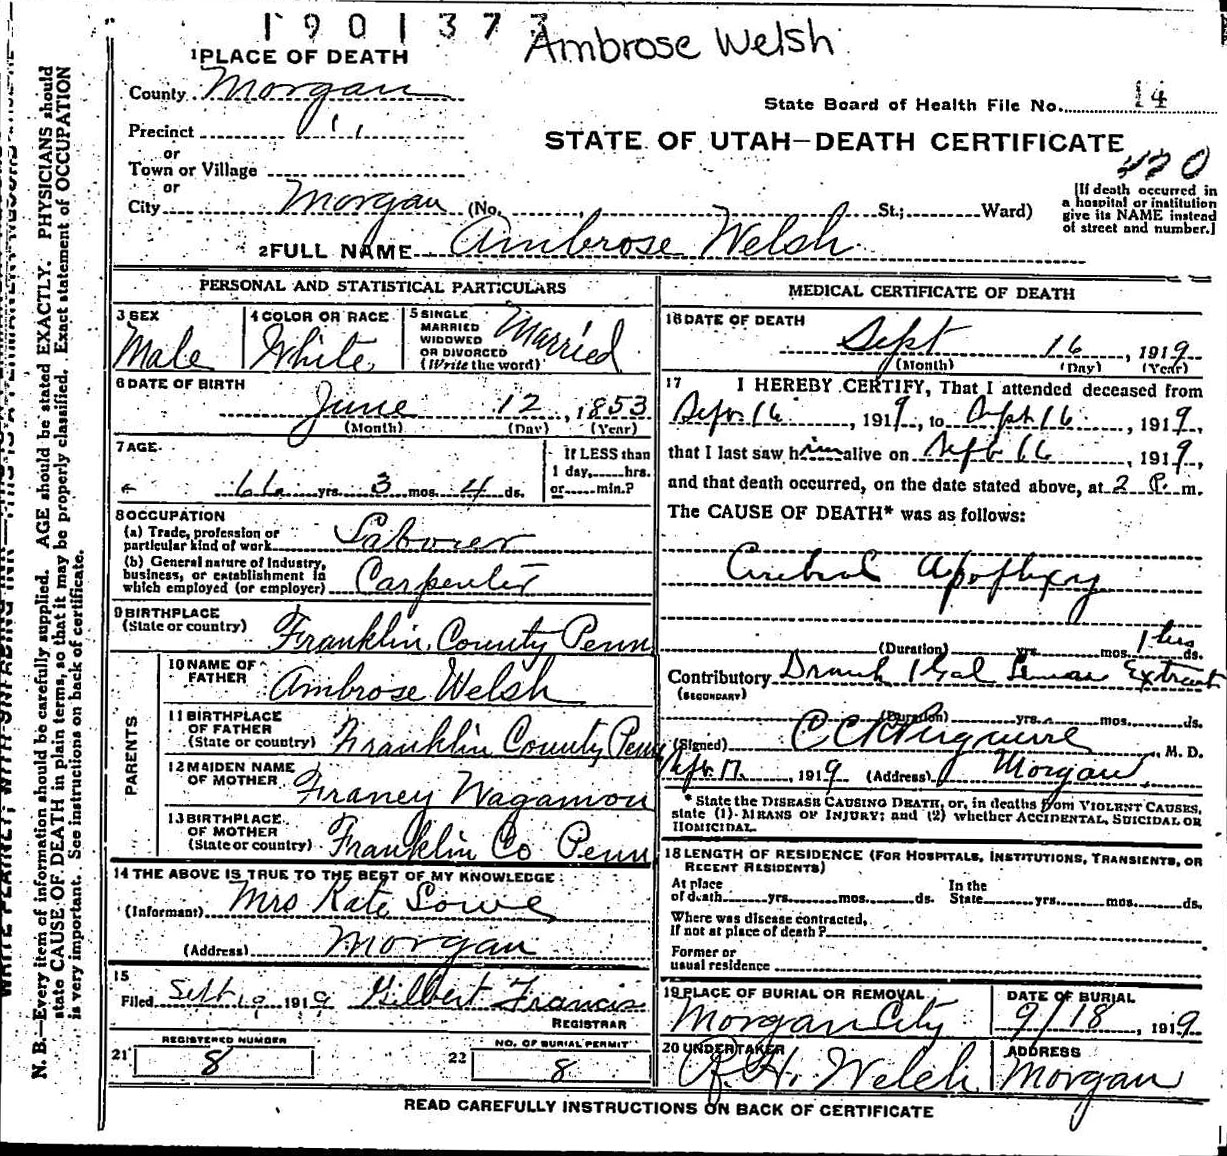 1901373
Ambrose Welsh
1 PLACE OF DEATH
County Morgan
State Board of Health File No. 14
Precinct " "
STATE OF UTAH—DEATH CERTIFICATE
or
Town or Village
420
or
City Morgan (No. , St.; Ward)
[If death occurred in a hospital or institution give its NAME instead of street and number.]
2 FULL NAME Ambrose Welsh
PERSONAL AND STATISTICAL PARTICULARS
3 SEX
Male
4 COLOR OR RACE
White
5 SINGLE
MARRIED
WIDOWED
OR DIVORCED
(Write the word)
Married
6 DATE OF BIRTH
June 12, 1853
(Month) (Day) (Year)
7 AGE
66 yrs. 3 mos. 4 ds.
If LESS than
1 day, hrs.
or min.?
8 OCCUPATION
(a) Trade, profession or
particular kind of work Laborer
(b) General nature of industry,
business, or establishment in
which employed (or employer) Carpenter
9 BIRTHPLACE
(State or country) Franklin County Penn
PARENTS
10 NAME OF
FATHER Ambrose Welsh
11 BIRTHPLACE
OF FATHER
(State or country) Franklin County Penn
12 MAIDEN NAME
OF MOTHER Franey Wagamon
13 BIRTHPLACE
OF MOTHER
(State or country) Franklin Co Penn
14 THE ABOVE IS TRUE TO THE BEST OF MY KNOWLEDGE:
(Informant) Mrs Kate Lowe
(Address) Morgan
15
Filed Sept 19 1919 Gilbert Francis
REGISTRAR
21 REGISTERED NUMBER
8
22 NO. OF BURIAL PERMIT
8
MEDICAL CERTIFICATE OF DEATH
16 DATE OF DEATH
Sept 16, 1919
(Month) (Day) (Year)
17 I HEREBY CERTIFY, That I attended deceased from
Sept 16, 1919, to Sept 16, 1919,
that I last saw him alive on Sept 16, 1919,
and that death occurred, on the date stated above, at 2 P. m.
The CAUSE OF DEATH* was as follows:
Cerebral Apoplexy
(Duration) yrs. mos. 1 hrs ds.
Contributory Drank 1 Gal Lemon Extract
(SECONDARY)
(Duration) yrs. mos. ds.
(Signed) M. D.
Sept. 17, 1919 (Address) Morgan
* State the DISEASE CAUSING DEATH, or, in deaths from VIOLENT CAUSES,
state (1) MEANS OF INJURY; and (2) whether ACCIDENTAL, SUICIDAL OR
HOMICIDAL.
18 LENGTH OF RESIDENCE (FOR HOSPITALS, INSTITUTIONS, TRANSIENTS, OR
RECENT RESIDENTS)
At place
of death yrs. mos. ds.
In the
State yrs. mos. ds.
Where was disease contracted,
If not at place of death?
Former or
usual residence
19 PLACE OF BURIAL OR REMOVAL
Morgan City
DATE OF BURIAL
9/18, 1919
20 UNDERTAKER
R. H. Welch
ADDRESS
Morgan
READ CAREFULLY INSTRUCTIONS ON BACK OF CERTIFICATE
N. B.—Every item of information should be carefully supplied. AGE should be stated EXACTLY. PHYSICIANS should
state CAUSE OF DEATH in plain terms, so that it may be properly classified. Exact statement of OCCUPATION
is very important. See instructions on back of certificate.